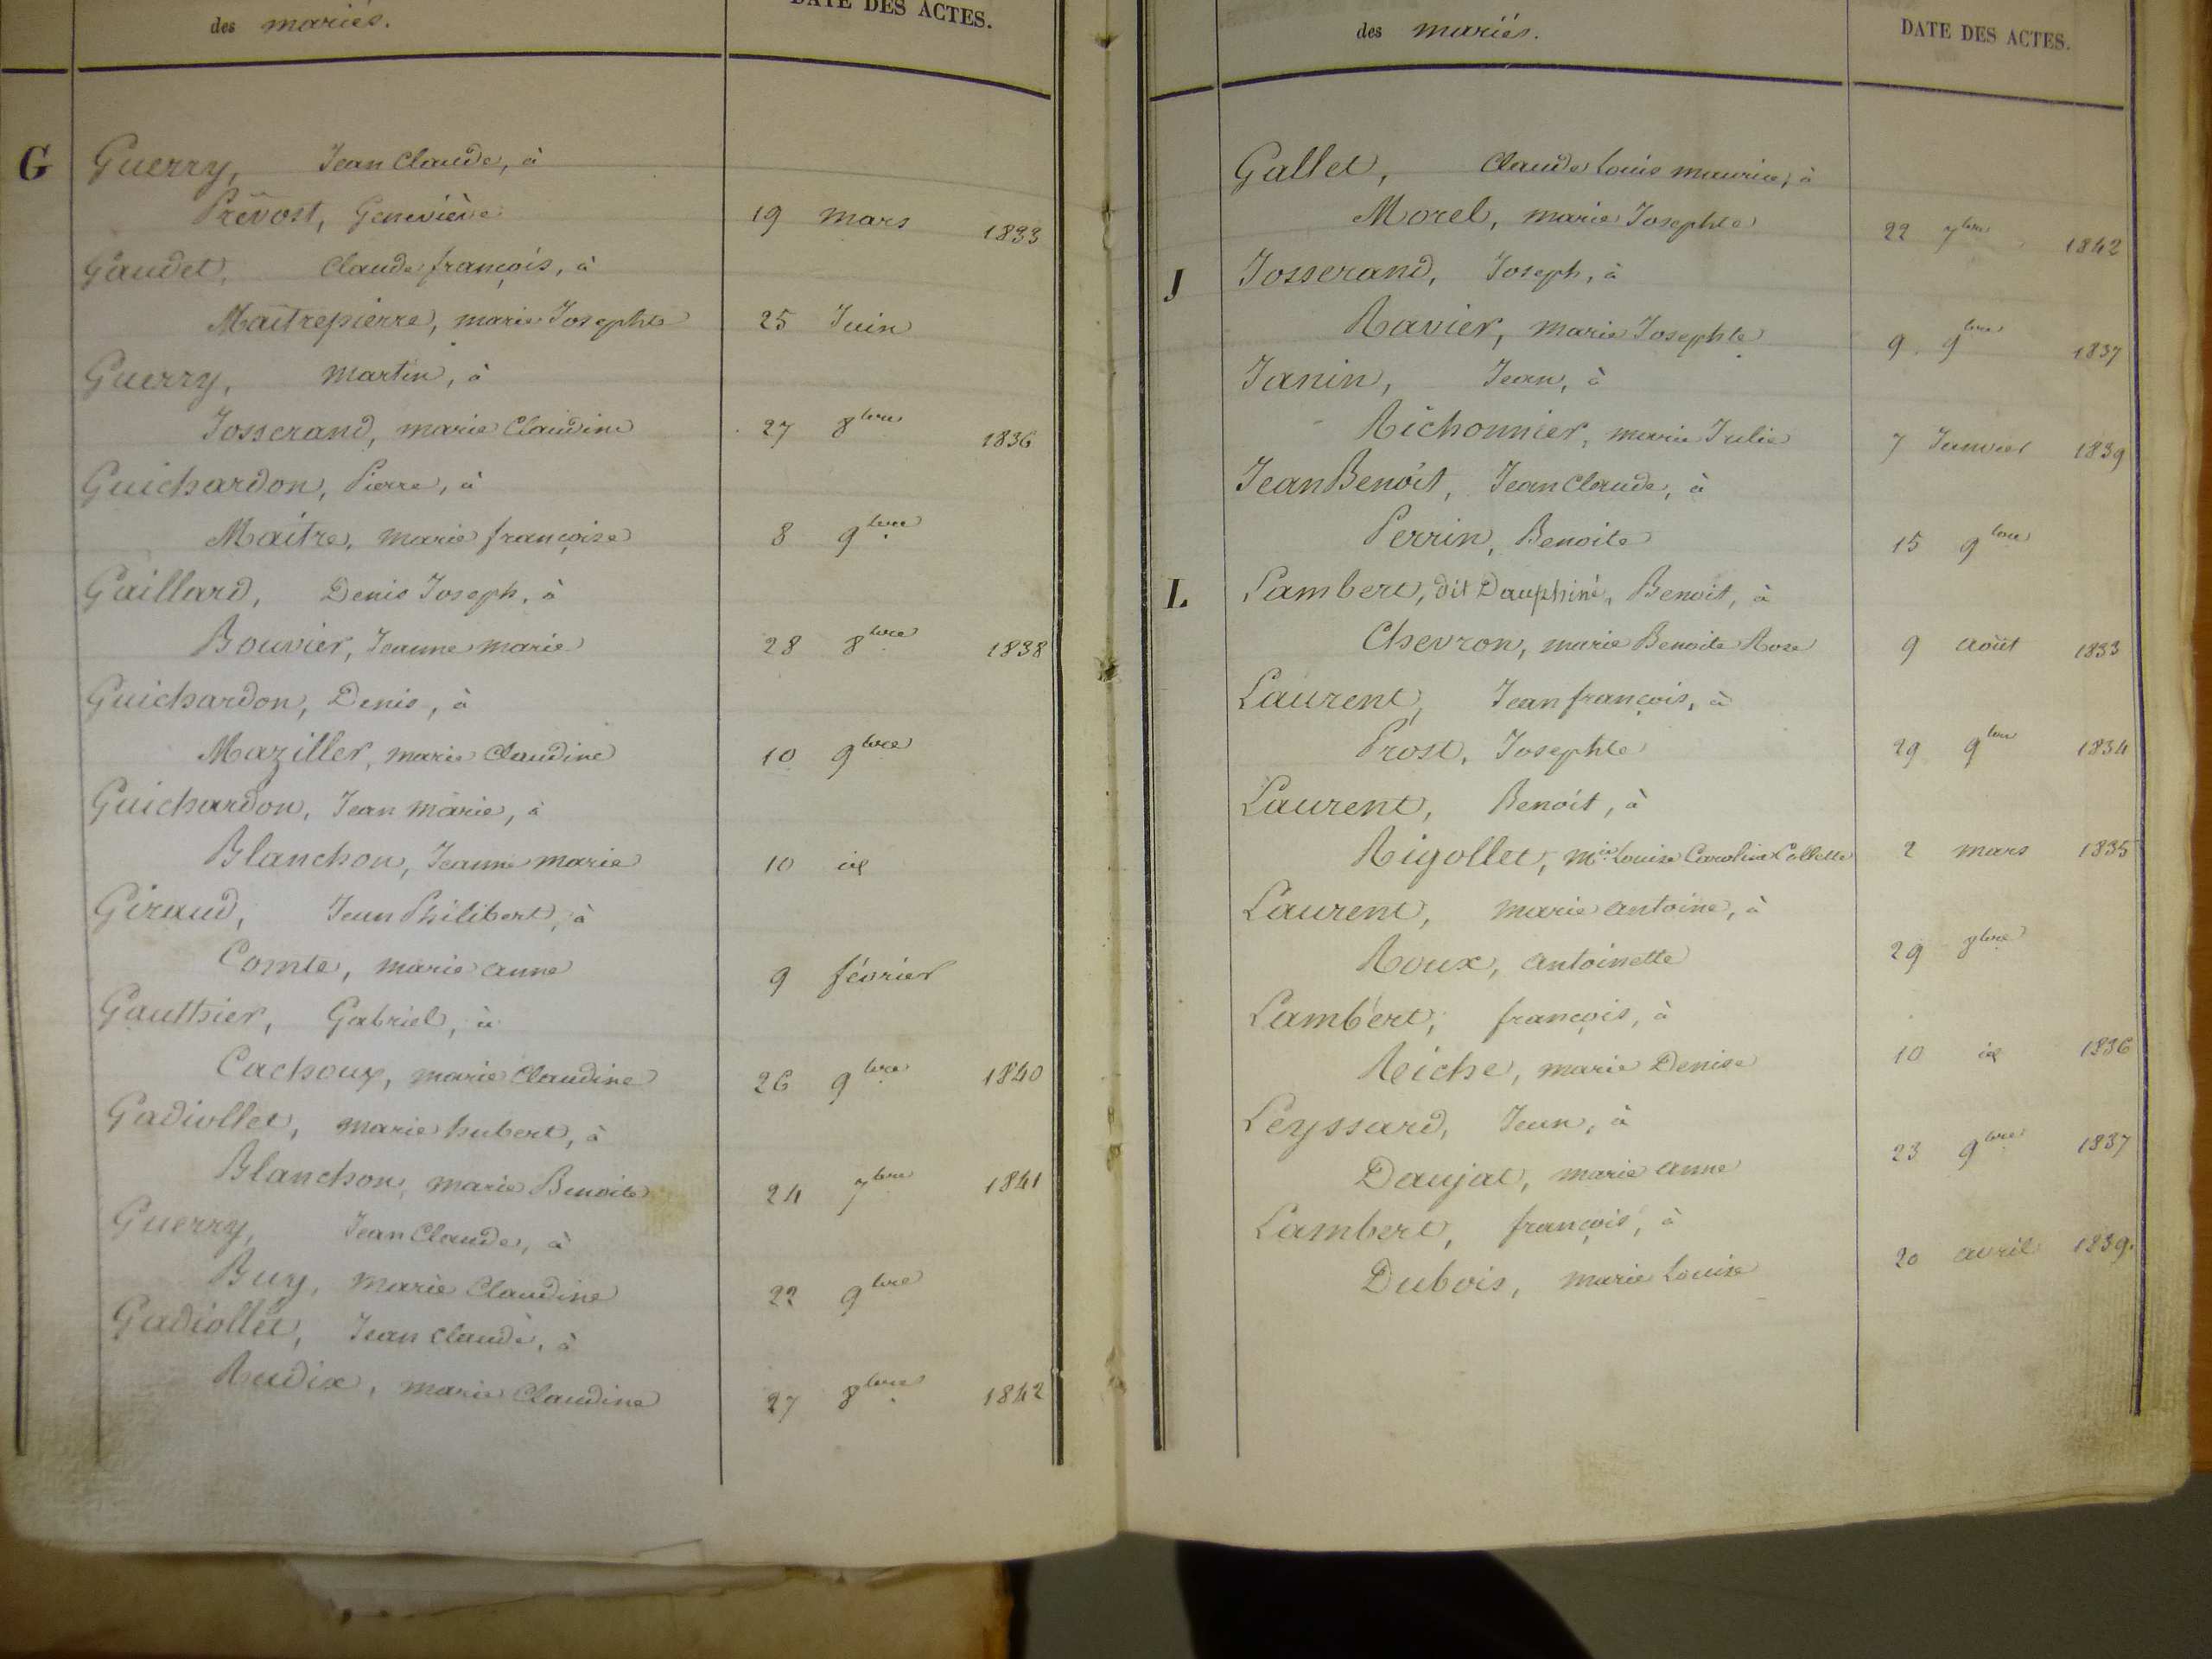 des mariés. DATE DES ACTES.
G Guerry, Jean Claude, à
Prévost, Geneviève 19 mars 1833
Gaudet, Claude françois, à
Maitrepierre, marie Josephte 25 Juin
Guerry, martin, à
Josserand, marie Claudine 27 8bre 1836
Guichardon, Pierre, à
Maitre, marie françoise 8 9bre
Gaillard, Denis Joseph, à
Bouvier, Jeanne marie 28 8bre 1838
Guichardon, Denis, à
Maziller, marie Claudine 10 9bre
Guichardon, Jean marie, à
Blanchon, Jeanne marie 10 id
Giraud, Jean Philibert, à
Comte, marie anne 9 février
Gauthier, Gabriel, à
Cachoux, marie Claudine 26 9bre 1840
Gadiollet, marie hubert, à
Blanchon, marie Benoite 24 7bre 1841
Guerry, Jean Claude, à
Buy, marie Claudine 22 9bre
Gadiollet, Jean Claude, à
Rudix, marie Claudine 27 8bre 1842
des mariés. DATE DES ACTES.
Gallet, Claude Louis maurice, à
Morel, marie Josephte 22 7bre 1842
J Josserand, Joseph, à
Ravier, marie Josephte 9 9bre 1837
Janin, Jean, à
Richonnier, marie Julie 7 Janvier 1839
JeanBenoit, Jean Claude, à
Perrin, Benoite 15 9bre
L Lambert, dit Dauphiné, Benoit, à
Chevron, marie Benoite Rose 9 août 1833
Laurent, Jean françois, à
Prost, Josephte 29 9bre 1834
Laurent, Benoit, à
Rigollet, mie Louise Caroline Collette 2 mars 1835
Laurent, marie antoine, à
Roux, antoinette 29 8bre
Lambert, françois, à
Riche, marie Denise 10 id 1836
Leyssard, Jean, à
Daujat, marie anne 23 9bre 1837
Lambert, françois, à
Dubois, marie Louise 20 avril 1839.